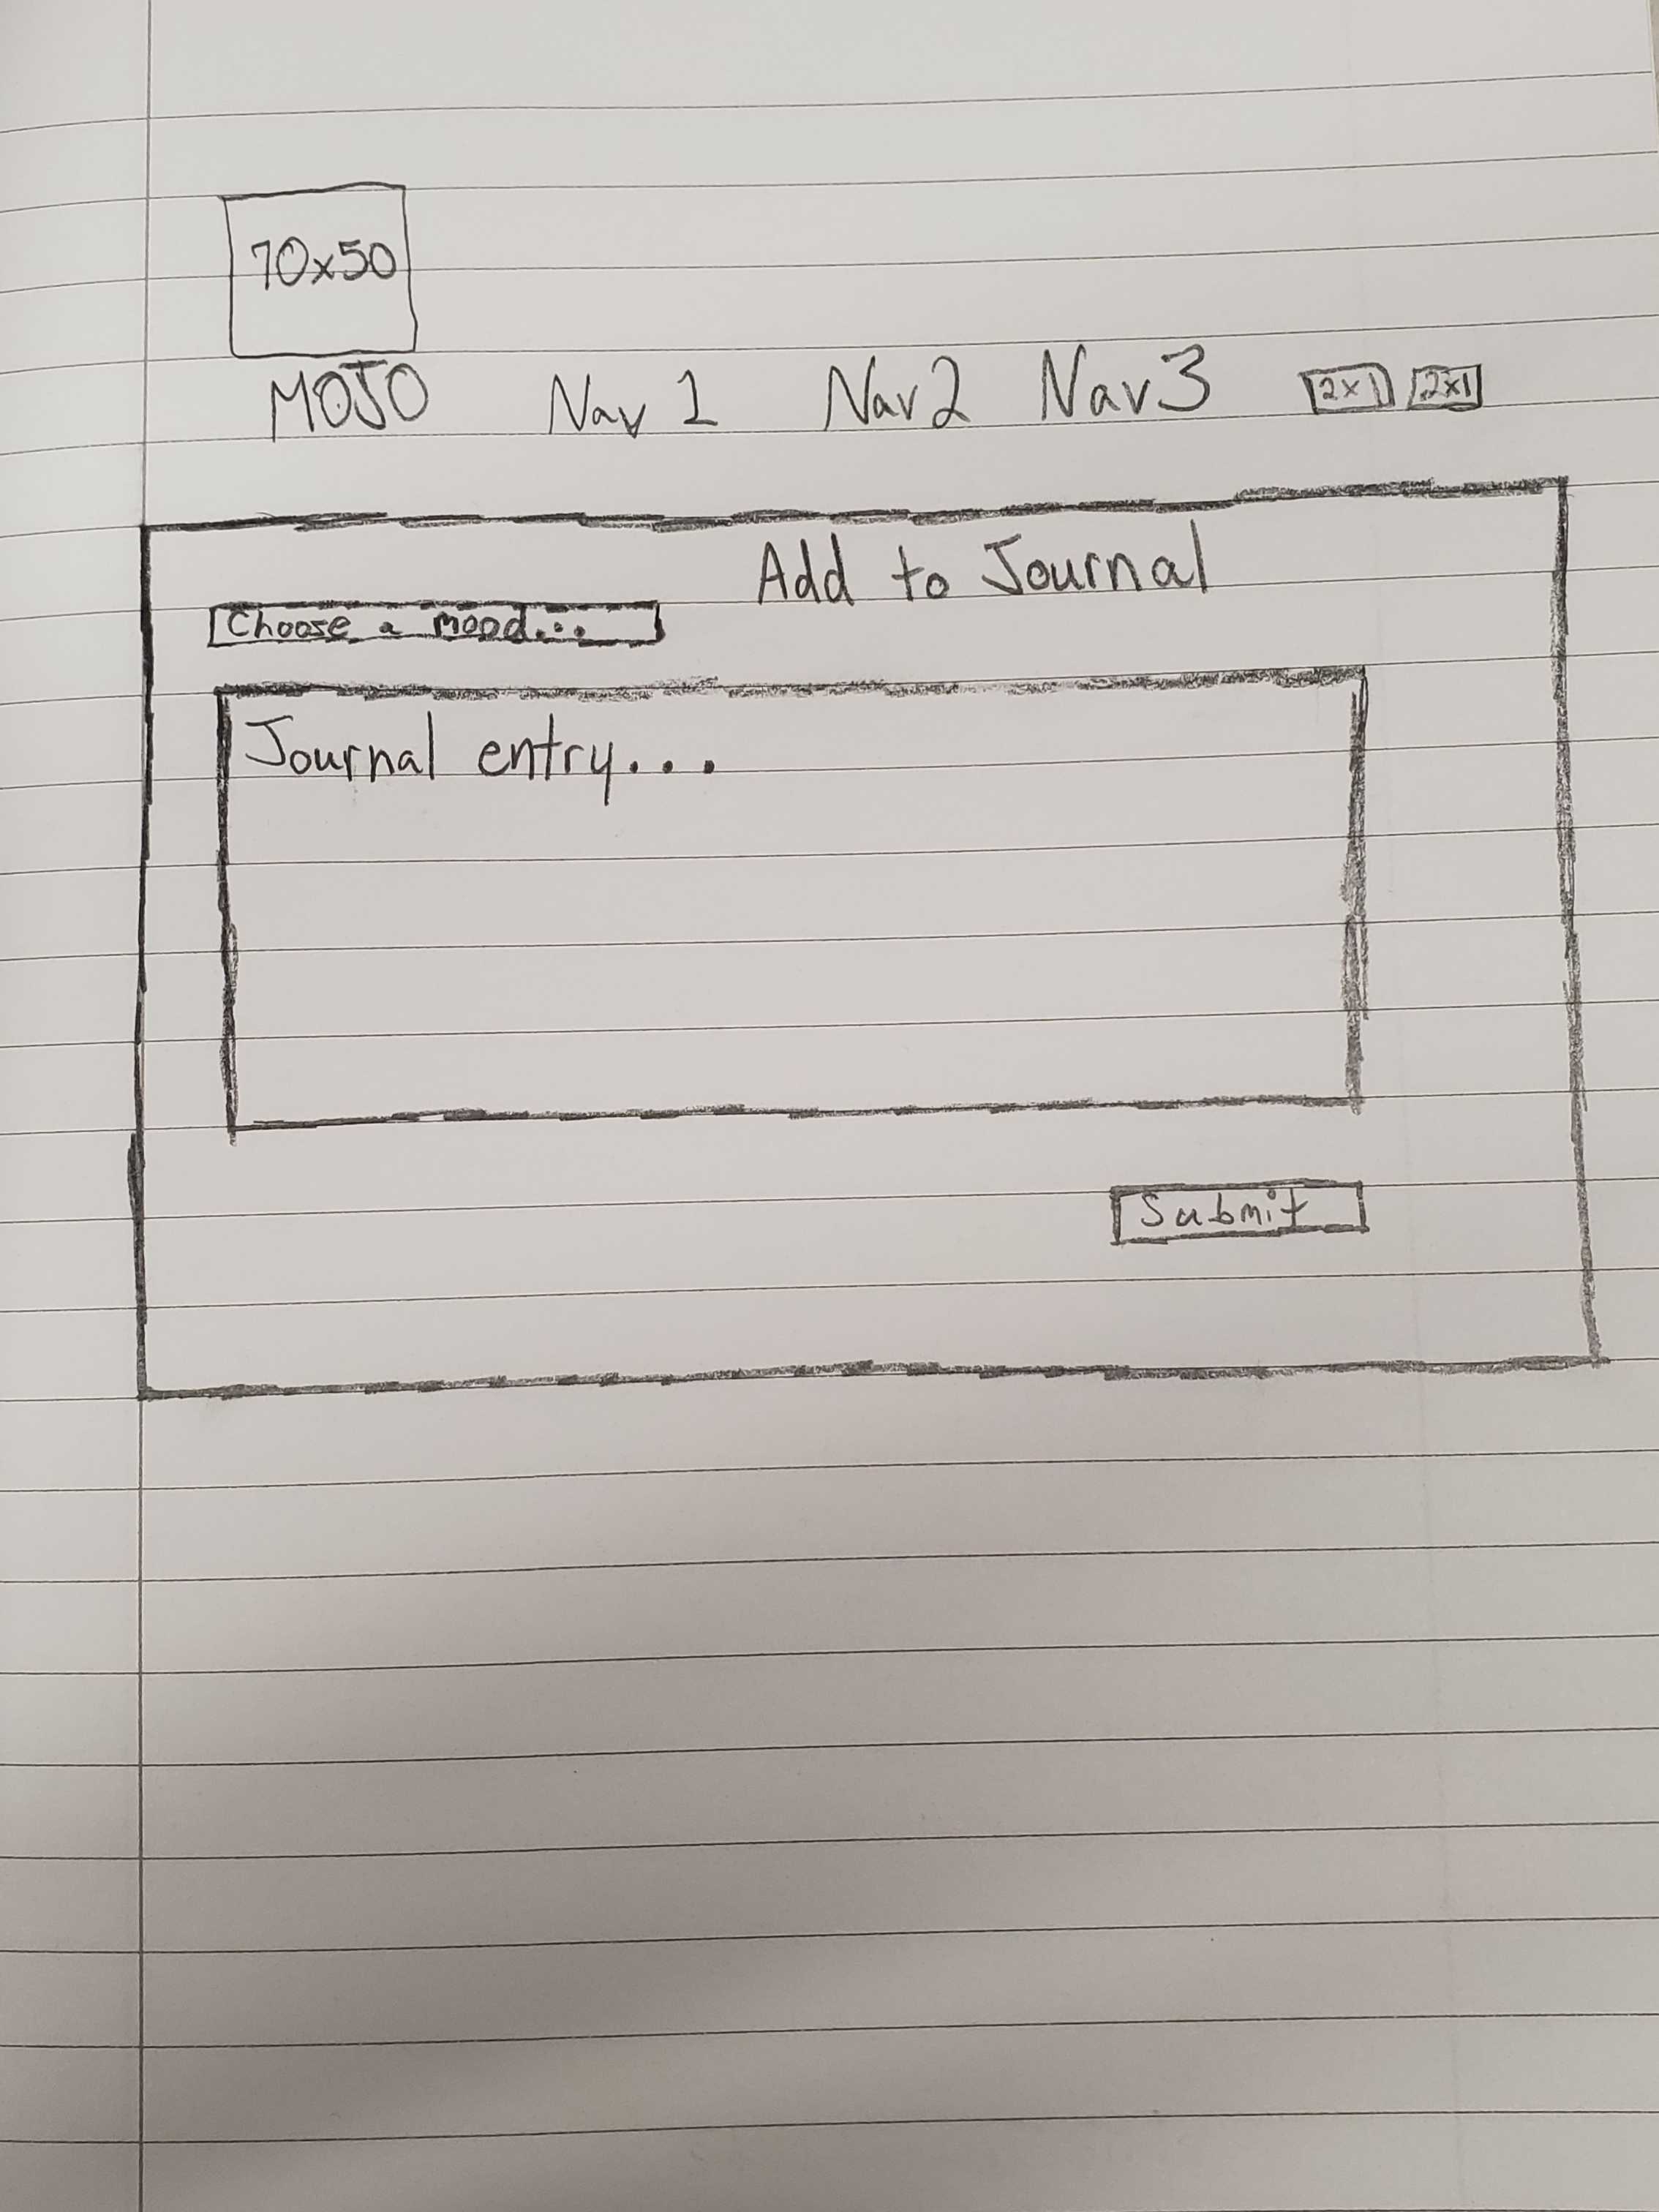 70x50
MOJO Nav 1 Nav 2 Nav 3 2x1 2x1
Add to Journal
Choose a mood...
Journal entry...
Submit